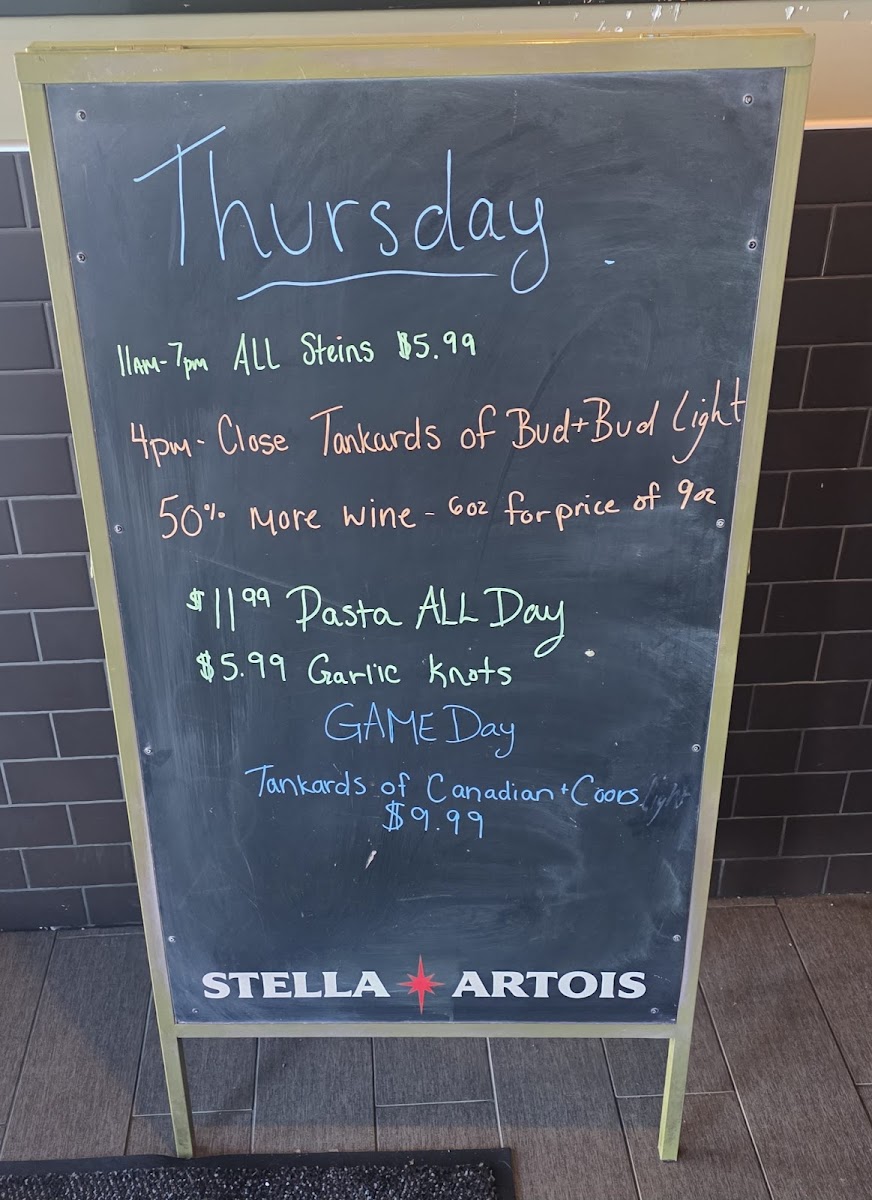 Thursday
11AM-7pm ALL Steins $5.99
4pm - Close Tankards of Bud+Bud Light
50% More wine - 6oz for price of 9oz
$11.99 Pasta ALL Day
$5.99 Garlic Knots
GAME Day
Tankards of Canadian + Coors Light
$9.99
STELLA ARTOIS